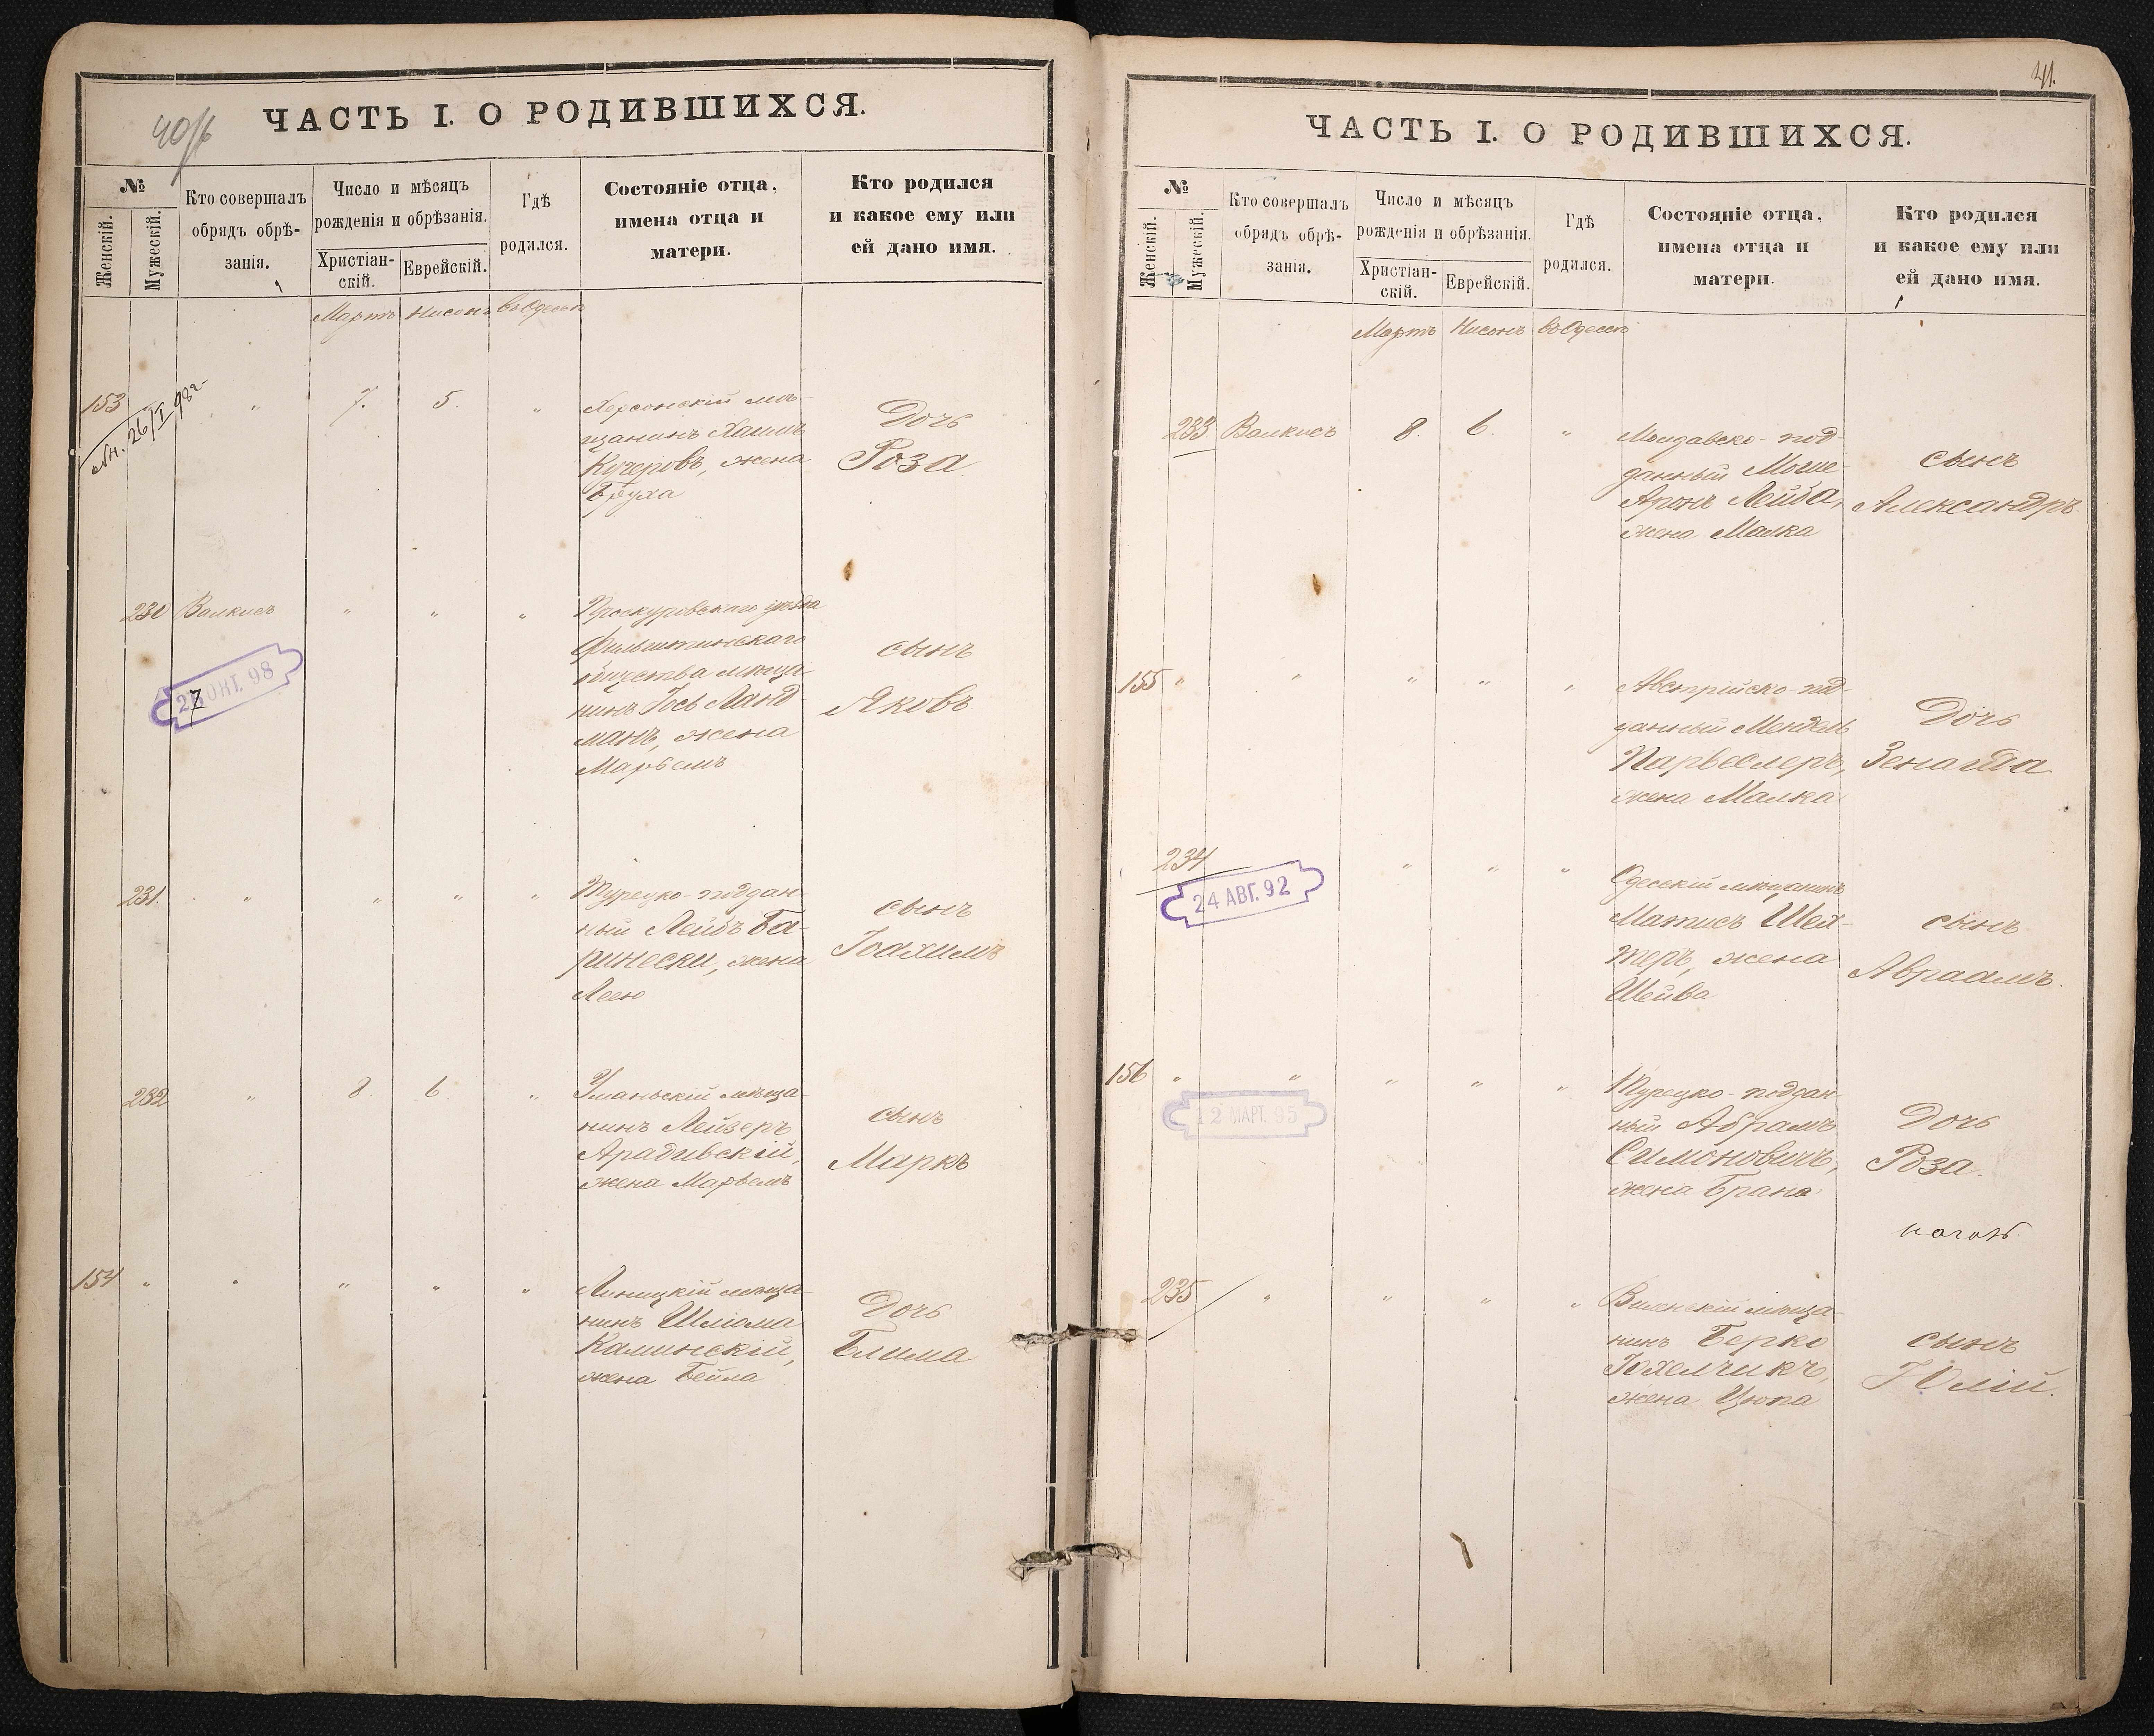 ЧАСТЬ I. О РОДИВШИХСЯ.
№
Женскій.
Мужескій.
Кто совершалъ
обрядъ обрѣ-
занія.
Число и мѣсяцъ
рожденія и обрѣзанія.
Христіан-
скій.
Еврейскій.
Гдѣ
родился.
Состояніе отца,
имена отца и
матери.
Кто родился
и какое ему или
ей дано имя.
Мартъ Нисонъ въ Одессѣ
153 " 7. 5. "
26/I 98 г.
Херсонскій мѣ-
щанинъ Хаимъ
Кучеровъ, жена
Бруха
Дочь
Роза
230 Валкисъ " " "
27 ОКТ. 98
Проскуровскаго уѣзда
Фильштинскаго
общества мѣща-
нинъ Іось Ланд-
манъ, жена
Марьемъ
сынъ
Яковъ
231. " " " "
Турецко-поддан-
ный Лейбъ Ба-
ринески, жена
Лея
сынъ
Іоахимъ
232 " 8 6 "
Уманьскій мѣща-
нинъ Лейзеръ
Арадивскій,
жена Марьемъ
сынъ
Маркъ
154 " " " " "
Линицкій мѣща-
нинъ Шлiома
Каминскій,
жена Бейла
Дочь
Блима
41.
ЧАСТЬ I. О РОДИВШИХСЯ.
№
Женскій.
Мужескій.
Кто совершалъ
обрядъ обрѣ-
занія.
Число и мѣсяцъ
рожденія и обрѣзанія.
Христіан-
скій.
Еврейскій.
Гдѣ
родился.
Состояніе отца,
имена отца и
матери.
Кто родился
и какое ему или
ей дано имя.
Мартъ Нисонъ въ Одессѣ
233 Валкисъ 8. 6. "
Молдавско-под-
данный Моше-
Аронъ Лейба,
жена Малка
сынъ
Александръ
155 " " " " "
Австрійско-под-
данный Мендель
Парвеслеръ,
жена Малка
Дочь
Зенаида
234 " " "
24 АВГ. 92
Одесскій мѣщанинъ
Матисъ Шех-
теръ, жена
Шейва
сынъ
Авраамъ.
156 " " " " "
12 МАРТ. 95
Турецко-поддан-
ный Абрамъ
Симоновичъ,
жена Брана
Дочь
Роза.
235 " " " "
Виленскій мѣща-
нинъ Берко
Юхелчикъ,
жена Цюпа
сынъ
Юлій.